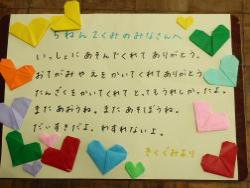 ちねんえくみのみなさんへ
いっしょに あそんでくれて ありがとう。
おてがみや えを かいてくれて ありがとう
たんざくを かいてくれて とってもうれしかった。だよ。
また あおうね。また あそぼうね。
だいすきだよ。わすれないよ。
きくぐみより